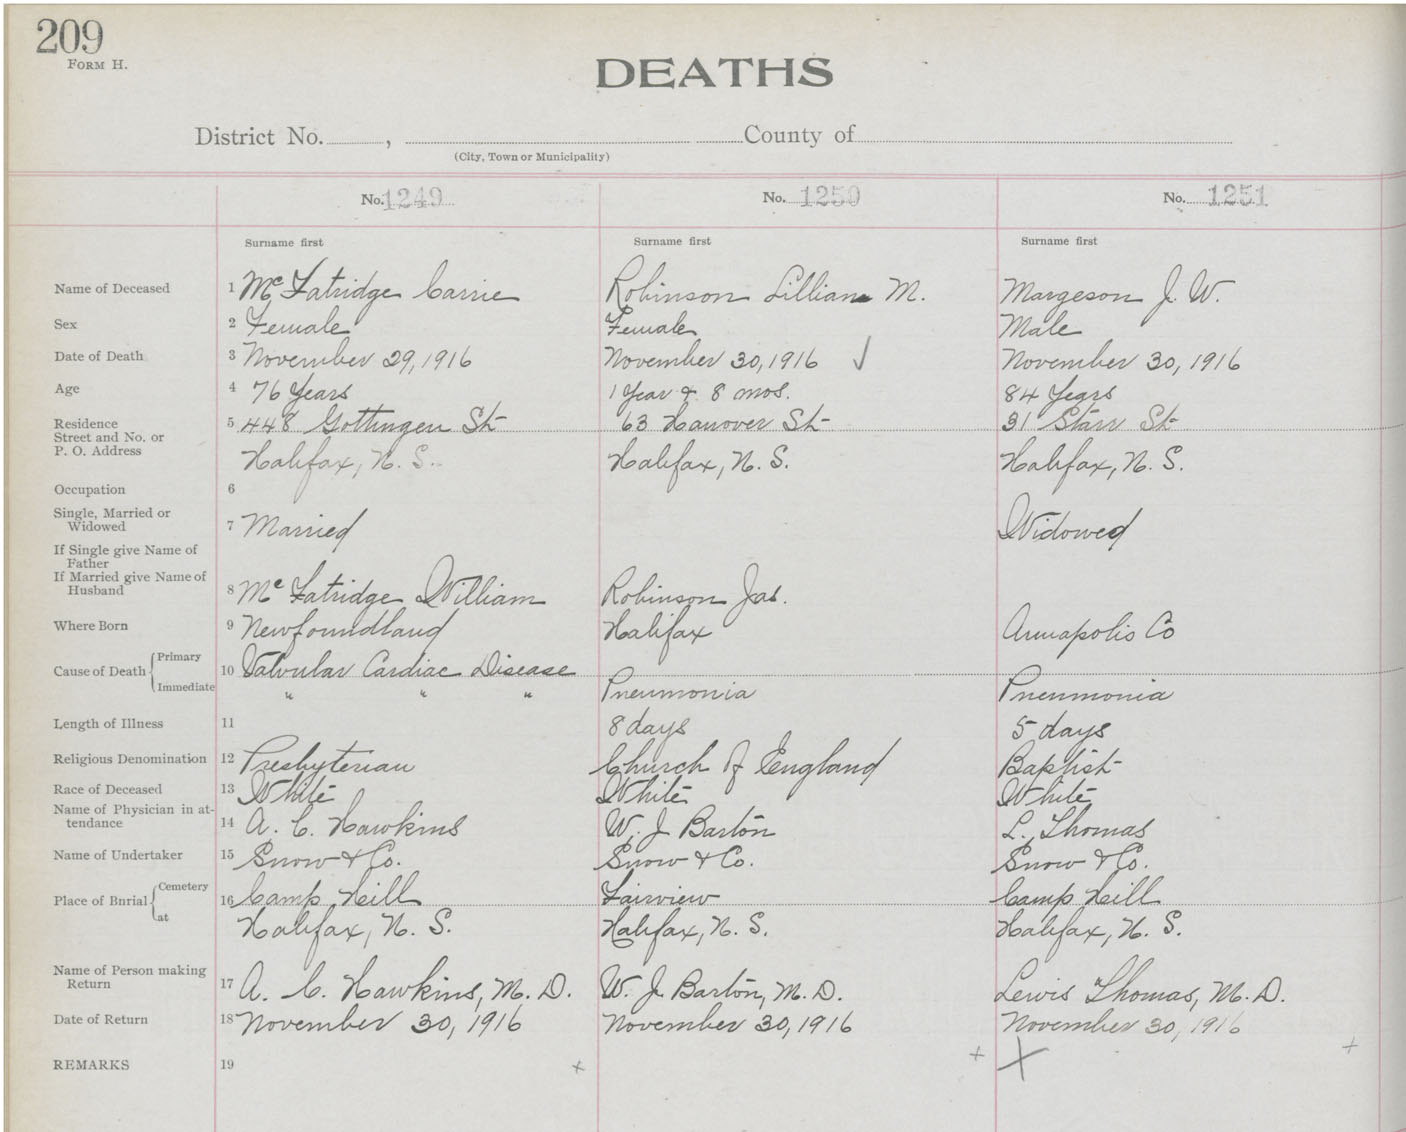 209
FORM H.
DEATHS
District No. , County of
(City, Town or Municipality)
No. 1249 No. 1250 No. 1251
Surname first Surname first Surname first
Name of Deceased 1 McFatridge Carrie Robinson Lillian M. Margeson J. W.
Sex 2 Female Female Male
Date of Death 3 November 29, 1916 November 30, 1916 ✓ November 30, 1916
Age 4 76 Years 1 Year & 8 mos. 84 Years
Residence 5 448 Gottingen St 63 Hanover St 31 Starr St
Street and No. or
P. O. Address Halifax, N. S. Halifax, N. S. Halifax, N. S.
Occupation 6
Single, Married or
Widowed 7 Married Widowed
If Single give Name of
Father
If Married give Name of
Husband 8 McFatridge William Robinson Jas.
Where Born 9 Newfoundland Halifax Annapolis Co
Cause of Death Primary 10 Valvular Cardiac Disease
Immediate " " " Pneumonia Pneumonia
Length of Illness 11 8 days 5 days
Religious Denomination 12 Presbyterian Church of England Baptist
Race of Deceased 13 White White White
Name of Physician in at-
tendance 14 A. C. Hawkins W. J. Barton L. Thomas
Name of Undertaker 15 Snow & Co. Snow & Co. Snow & Co.
Place of Burial Cemetery 16 Camp Hill Fairview Camp Hill
at Halifax, N. S. Halifax, N. S. Halifax, N. S.
Name of Person making
Return 17 A. C. Hawkins, M. D. W. J. Barton, M. D. Lewis Thomas, M. D.
Date of Return 18 November 30, 1916 November 30, 1916 November 30, 1916
REMARKS 19 + + X +